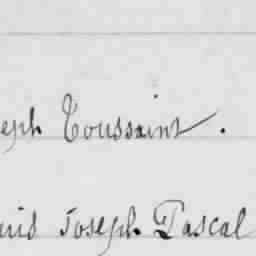 eph Toussaint.
Joseph Pascal